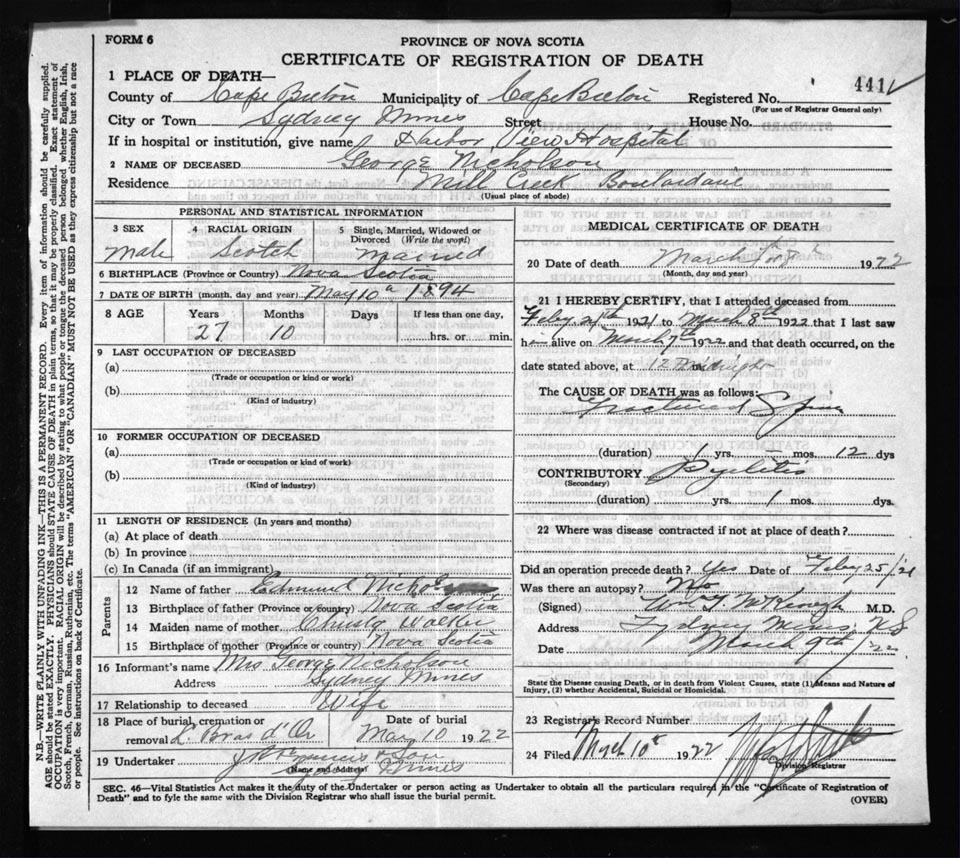 FORM 6
PROVINCE OF NOVA SCOTIA
CERTIFICATE OF REGISTRATION OF DEATH
441
1 PLACE OF DEATH—
County of Cape Breton Municipality of Cape Breton Registered No.
(For use of Registrar General only)
City or Town Sydney Mines Street House No.
If in hospital or institution, give name Harbor View Hospital
2 NAME OF DECEASED George Nicholson
Residence Mill Creek Boulardarie
(Usual place of abode)
PERSONAL AND STATISTICAL INFORMATION
3 SEX 4 RACIAL ORIGIN 5 Single, Married, Widowed or Divorced (Write the word)
Male Scotch Married
6 BIRTHPLACE (Province or Country) Nova Scotia
7 DATE OF BIRTH (month, day and year) May 10 1894
8 AGE Years Months Days If less than one day,
27 10 hrs. or min.
9 LAST OCCUPATION OF DECEASED
(a)
(Trade or occupation or kind or work)
(b)
(Kind of industry)
10 FORMER OCCUPATION OF DECEASED
(a)
(Trade or occupation or kind or work)
(b)
(Kind of industry)
11 LENGTH OF RESIDENCE (In years and months)
(a) At place of death
(b) In province
(c) In Canada (if an immigrant)
Parents
12 Name of father Edmund Nicholson
13 Birthplace of father (Province or country) Nova Scotia
14 Maiden name of mother Christy Walker
15 Birthplace of mother (Province or country) Nova Scotia
16 Informant's name Mrs George Nicholson
Address Sydney Mines
17 Relationship to deceased Wife
18 Place of burial, cremation or removal L. Bras d'Or Date of burial Mar 10 1922
19 Undertaker & Son
(Name and Address) Mines
MEDICAL CERTIFICATE OF DEATH
20 Date of death March 1922
(Month, day and year)
21 I HEREBY CERTIFY, that I attended deceased from
Feby 1921 to March 8th 1922 that I last saw
h alive on March 7th 1922 and that death occurred, on the
date stated above, at 12 Midnight
The CAUSE OF DEATH was as follows:
Fractured Spine
(duration) 1 yrs. mos. 12 dys
CONTRIBUTORY Pyelitis
(Secondary)
(duration) yrs. 1 mos. dys.
22 Where was disease contracted if not at place of death?
Did an operation precede death? Yes Date of Feby 25/21
Was there an autopsy? No
(Signed) M.D.
Address Sydney Mines NS
Date March 9th /22
State the Disease causing Death, or in death from Violent Causes, state (1) Means and Nature of Injury, (2) whether Accidental, Suicidal or Homicidal.
23 Registrar's Record Number
24 Filed Mch 10th 1922
Division Registrar
SEC. 46—Vital Statistics Act makes it the duty of the Undertaker or person acting as Undertaker to obtain all the particulars required in the "Certificate of Registration of
Death" and to fyle the same with the Division Registrar who shall issue the burial permit.
(OVER)
N.B.—WRITE PLAINLY WITH UNFADING INK—THIS IS A PERMANENT RECORD. Every item of information should be carefully supplied.
AGE should be stated EXACTLY. PHYSICIANS should STATE CAUSE OF DEATH in plain terms, so that it may be properly classified. Exact statement of
OCCUPATION is very important. RACIAL ORIGIN will be described by stating to what people or tongue the deceased person belonged whether English, Irish,
Scotch, French, German, Russian, Ruthenian, etc. The terms "AMERICAN" OR "CANADIAN" MUST NOT BE USED as they express citizenship but not a race
or people. See instructions on back of Certificate.